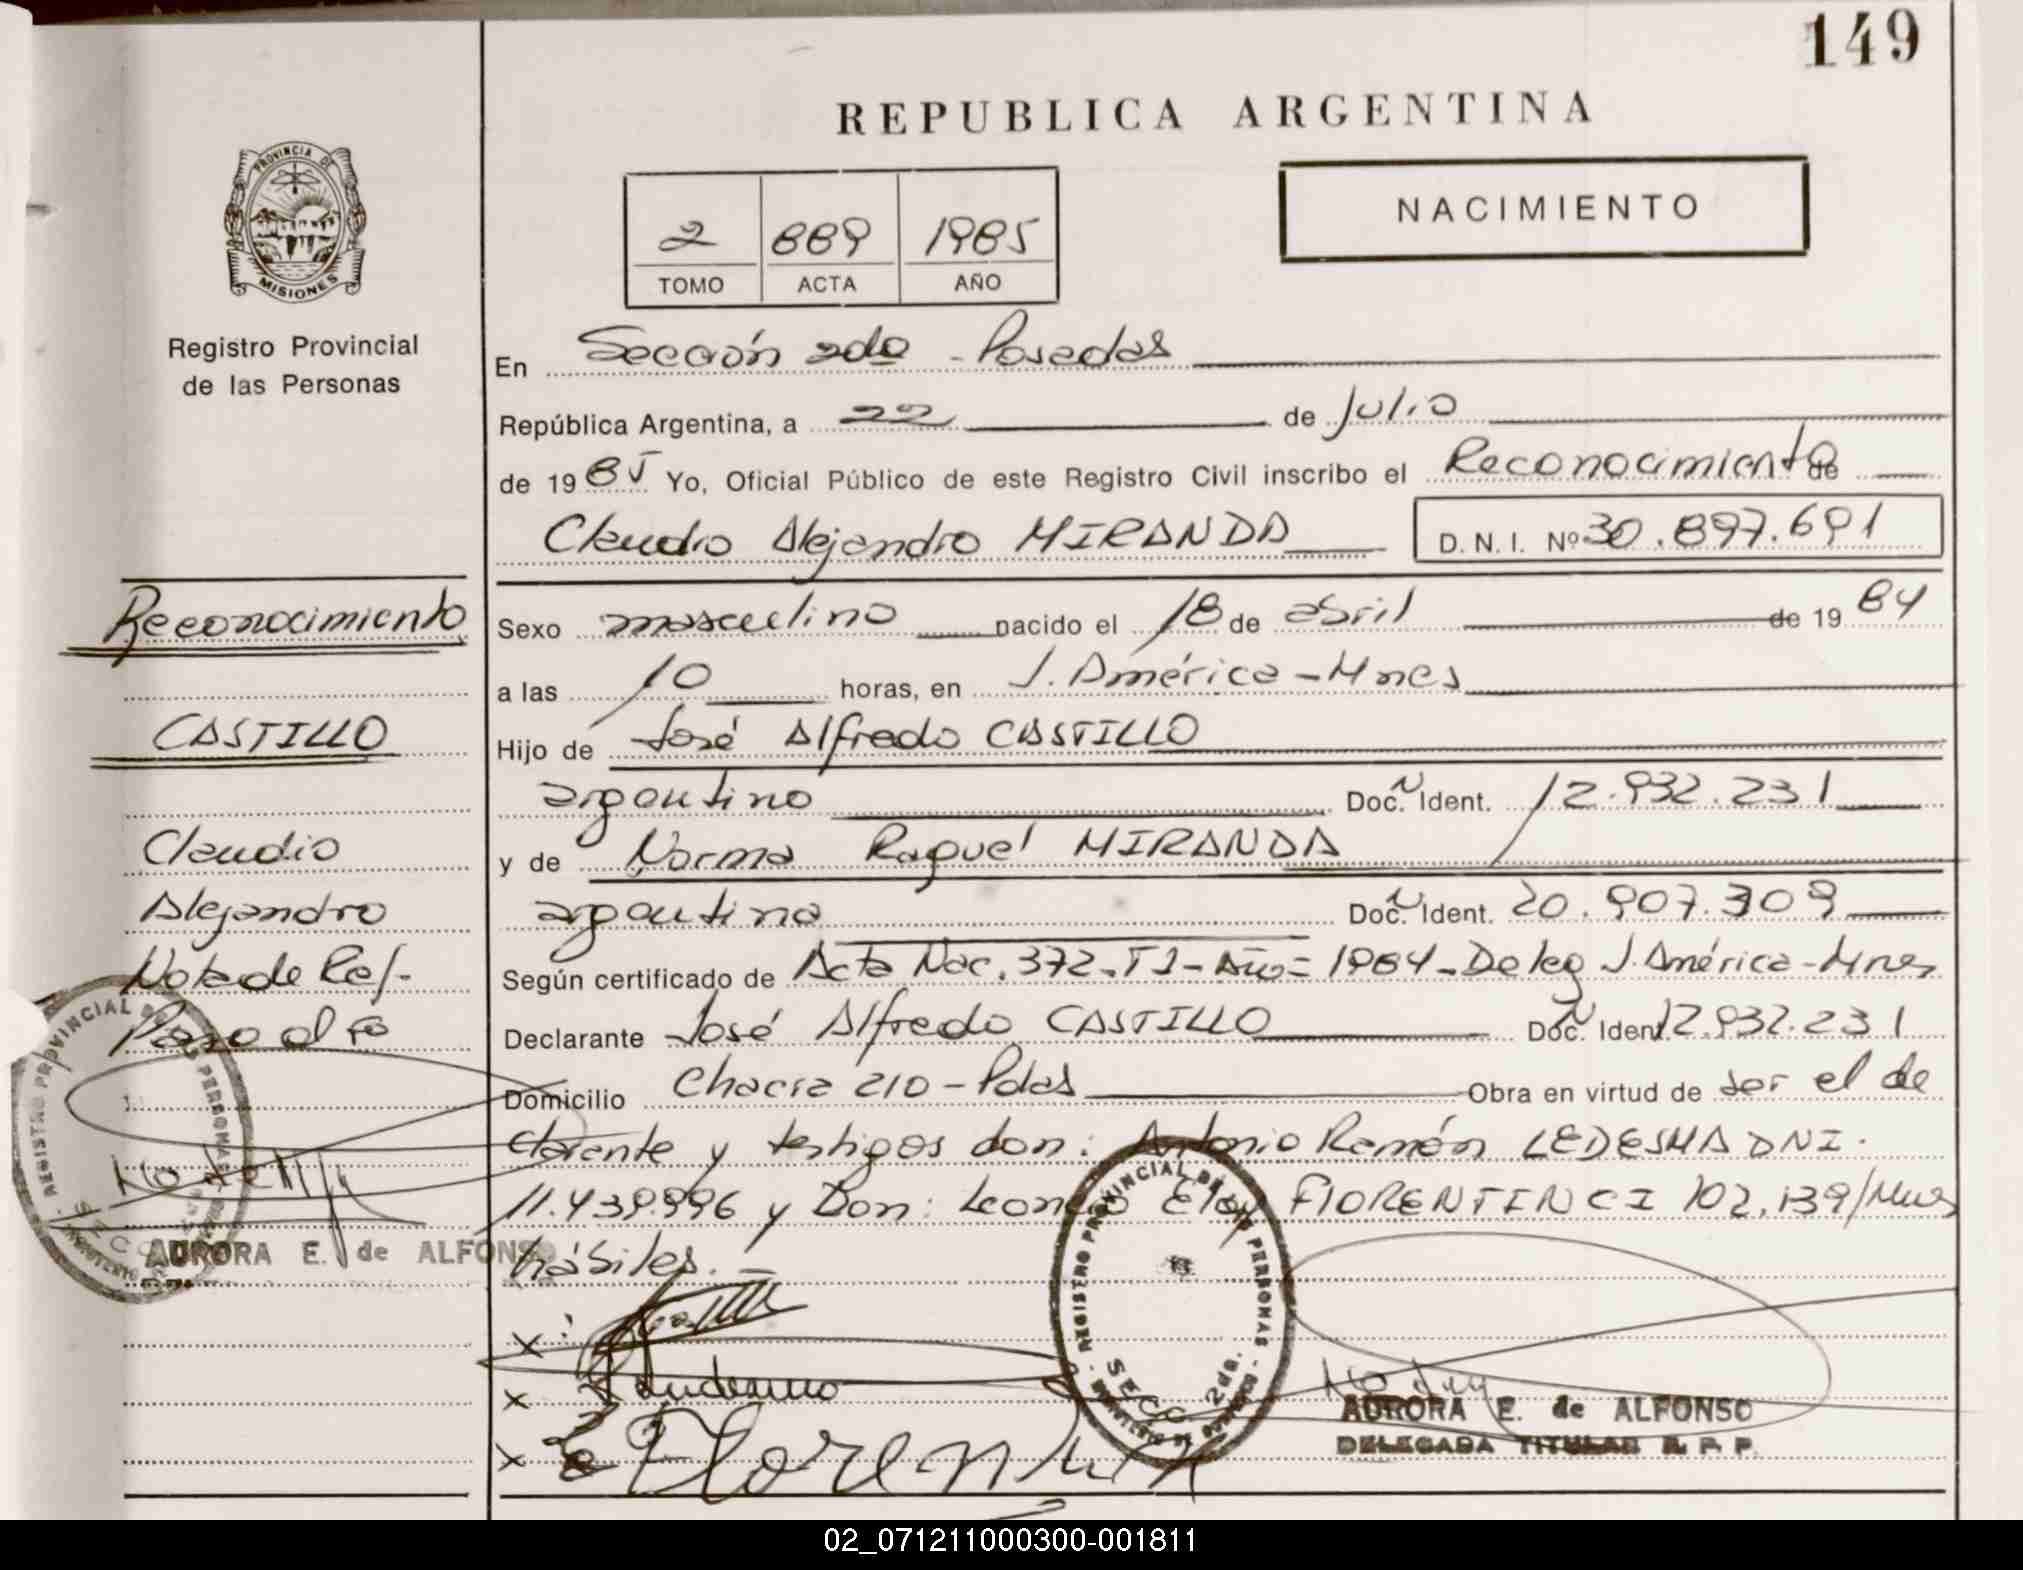 149
REPUBLICA ARGENTINA
NACIMIENTO
2 889 1985
TOMO ACTA AÑO
PROVINCIA DE
MISIONES
Registro Provincial
de las Personas
En Sección 2da - Posadas
República Argentina, a 22 de Julio
de 1985 Yo, Oficial Público de este Registro Civil inscribo el Reconocimiento de
Claudio Alejandro MIRANDA D. N. I. Nº 30.897.691
Sexo masculino nacido el 18 de abril de 1984
a las 10 horas, en J. América - Mnes
Hijo de José Alfredo CASTILLO
argentino Doc. Ident. 12.932.231
y de Norma Raquel MIRANDA
argentina Doc. Ident. 20.907.309
Según certificado de Acta Nac. 372 - T1 - Año = 1984 - Deleg J. América - Mnes
Declarante José Alfredo CASTILLO Doc. Ident. 12.932.231
Domicilio Chacra 210 - Pdas Obra en virtud de ser el de
clarante y testigos don: Antonio Ramón LEDESMA DNI.
11.439.996 y Don: Leoncio Eloy FIORENTIN CI 102.139/Mnes
hábiles.
Reconocimiento
CASTILLO
Claudio
Alejandro
Nota de Ref-
AURORA E. de ALFONSO
REGISTRO PROVINCIAL DE LAS PERSONAS
SECC 2da.
x
x
x
AURORA E. de ALFONSO
DELEGADA TITULAR R. P. P.
02_071211000300-001811